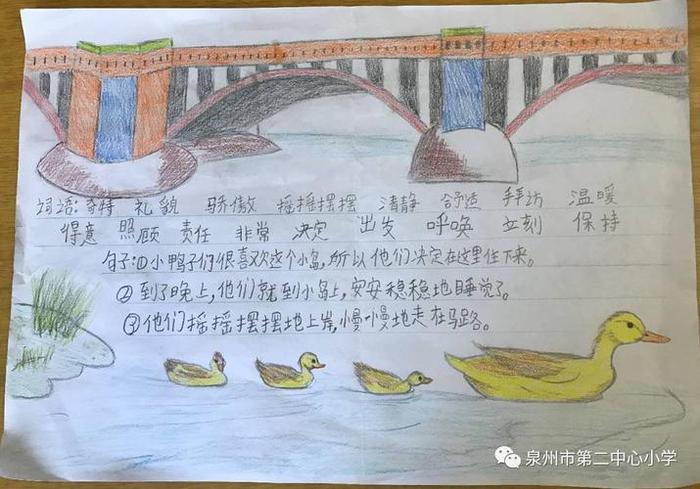 词语：奇特 礼貌 骄傲 摇摇摆摆 清静 舒适 拜访 温暖
得意 照顾 责任 非常 决定 出发 呼唤 立刻 保持
句子：①小鸭子们很喜欢这个小岛，所以他们决定在这里住下来。
②到了晚上，他们就到小岛上，安安稳稳地睡觉了。
③他们摇摇摆摆地上岸，慢慢地走在马路。
泉州市第二中心小学